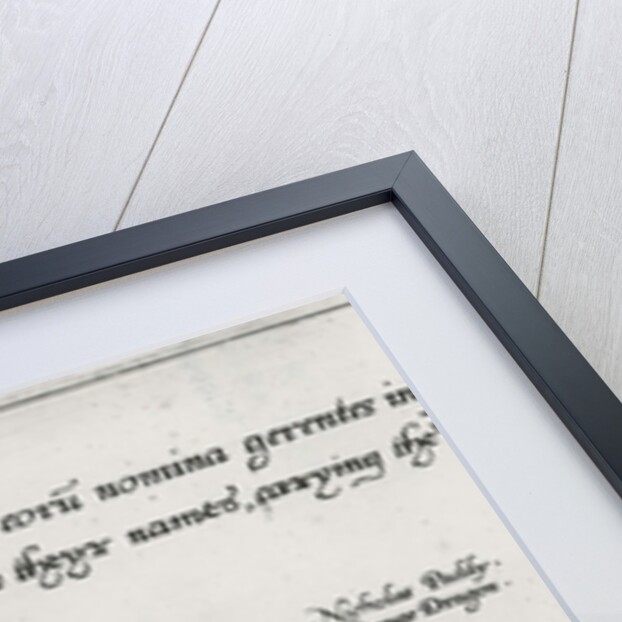 eorū nomina gerentes in
theyr names, carying the
Nicholas Paddy.
Dragon